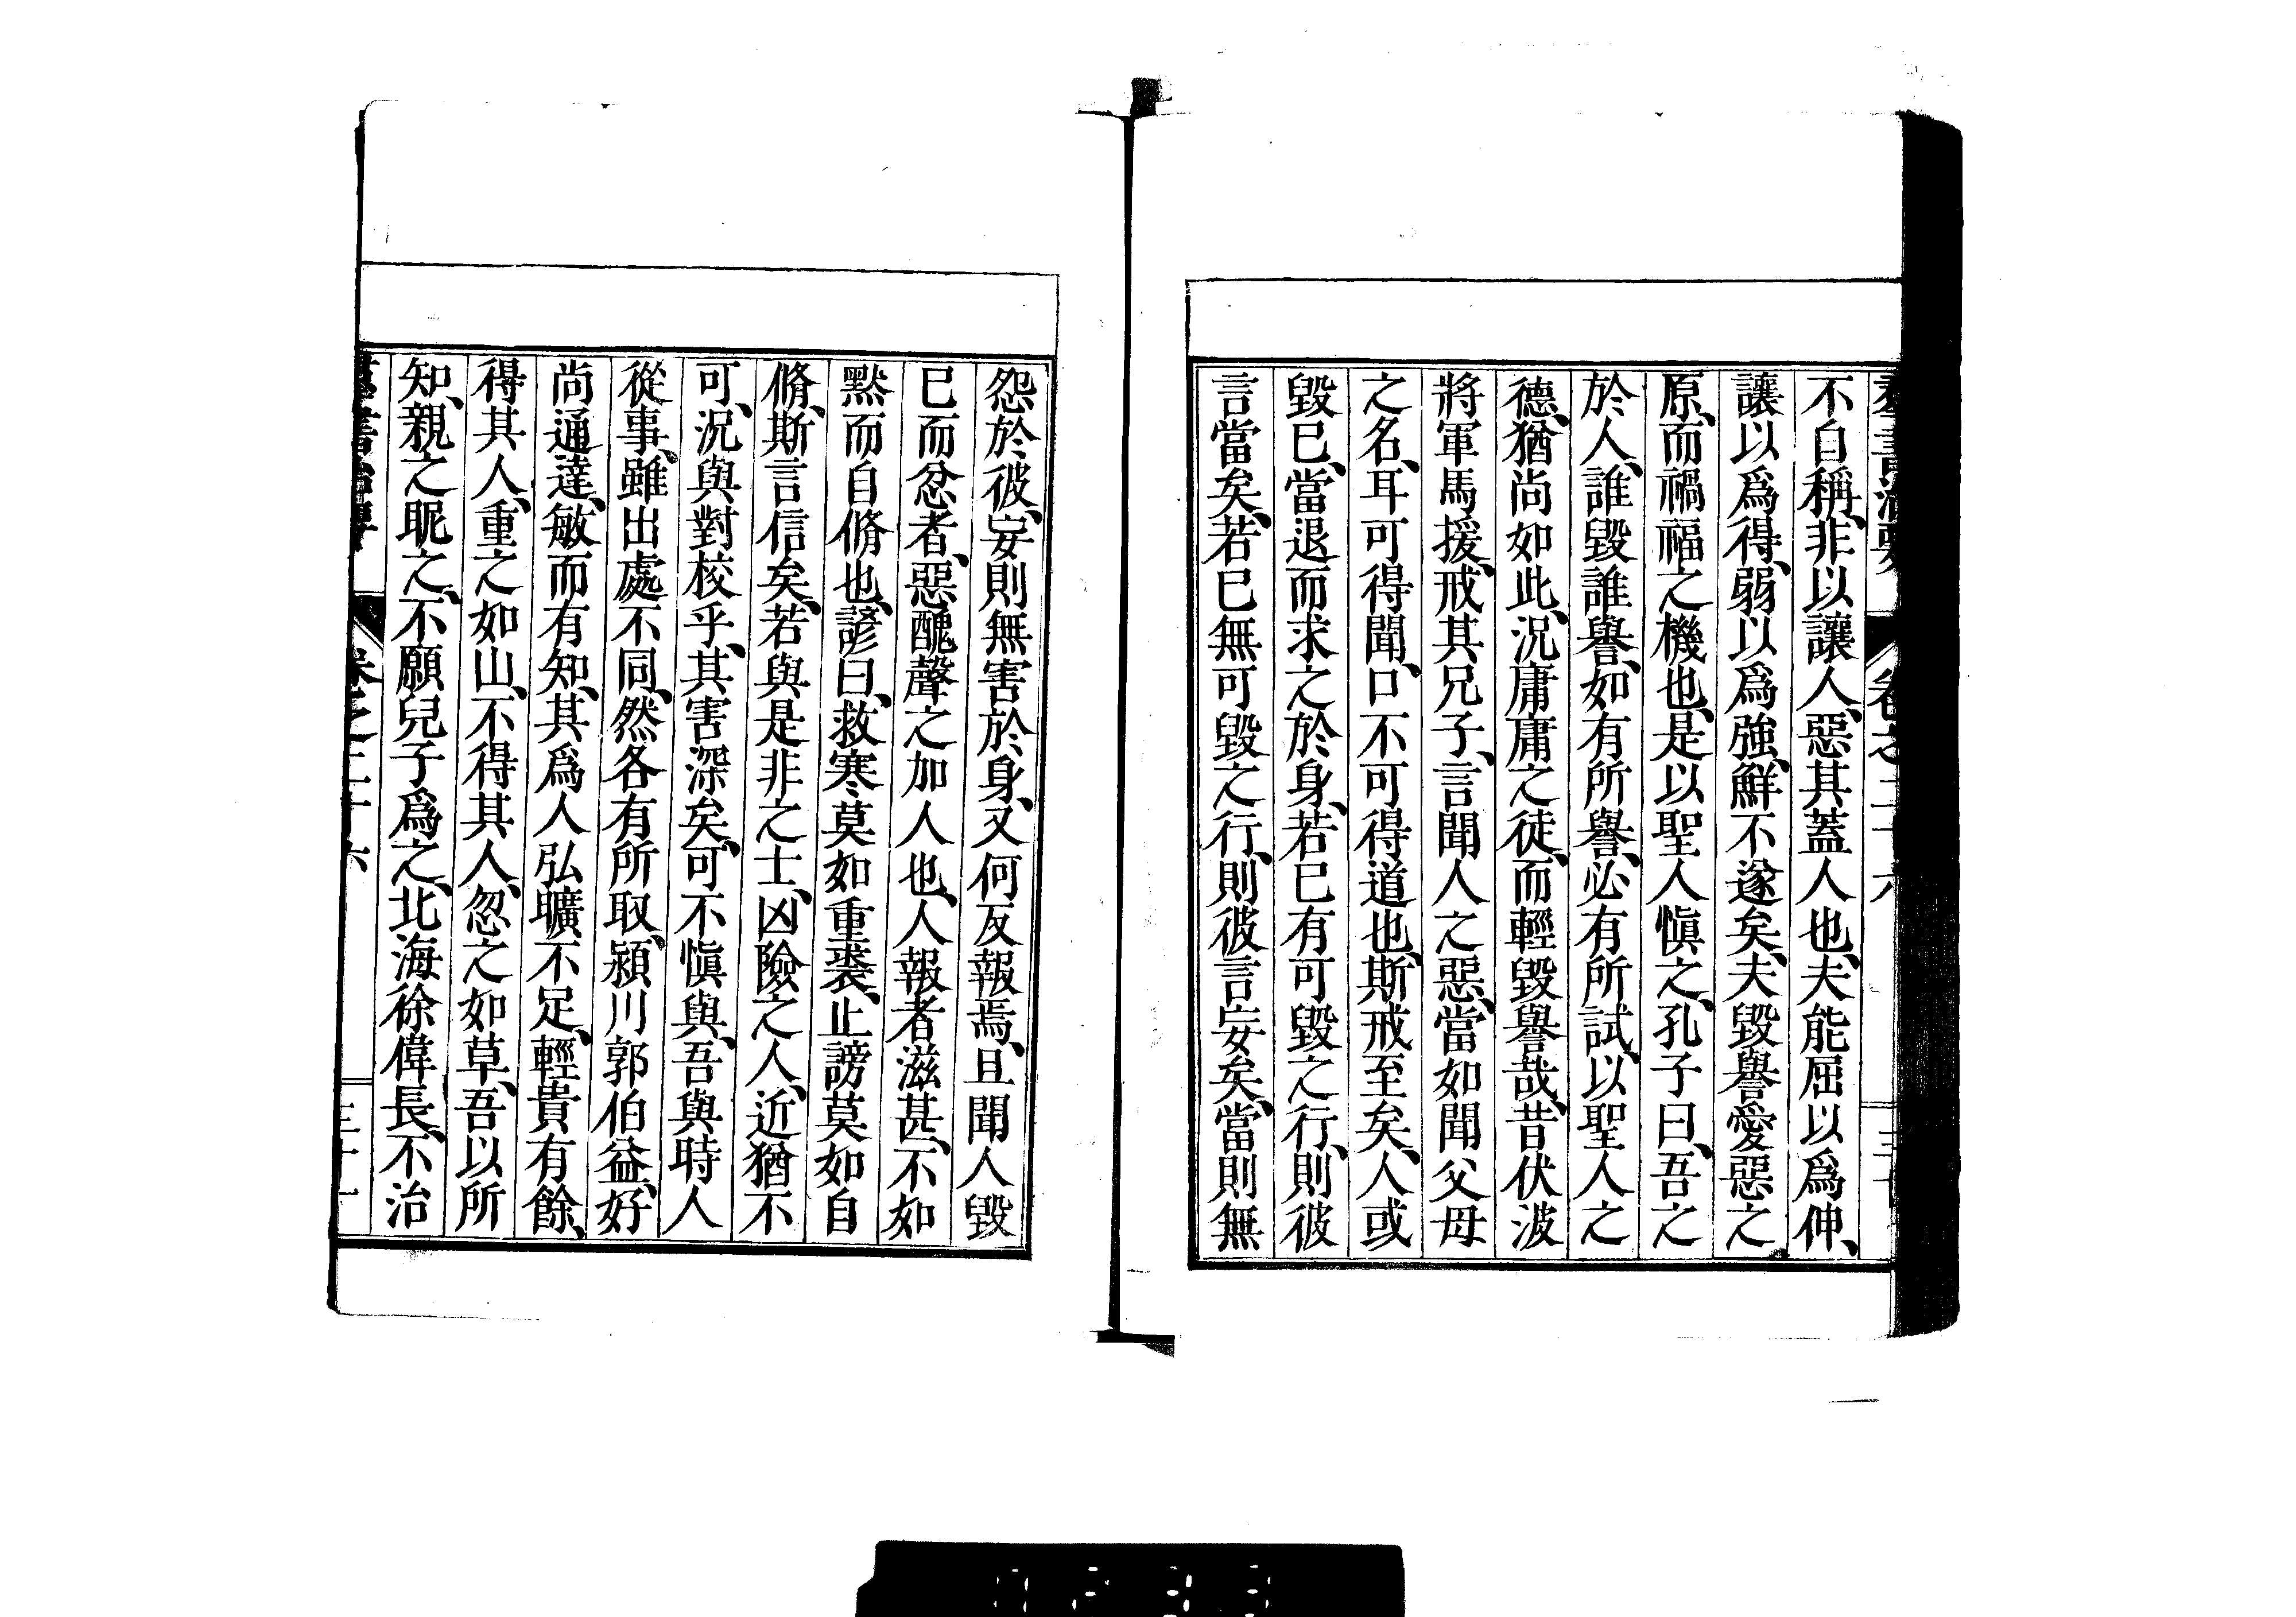 羣書治要 卷之二十六
不自稱、非以讓人、惡其蓋人也、夫能屈以爲伸、
讓以爲得、弱以爲強、鮮不遂矣、夫毀譽愛惡之
原、而禍福之機也、是以聖人愼之、孔子曰、吾之
於人、誰毀誰譽、如有所譽、必有所試、以聖人之
德、猶尚如此、況庸庸之徒、而輕毀譽哉、昔伏波
將軍馬援、戒其兄子、言聞人之惡、當如聞父母
之名、耳可得聞、口不可得道也、斯戒至矣、人或
毀已、當退而求之於身、若已有可毀之行、則彼
言當矣、若已無可毀之行、則彼言妄矣、當則無
怨於彼、妄則無害於身、又何反報焉、且聞人毀
已而忿者、惡醜聲之加人也、人報者滋甚、不如
默而自脩也、諺曰、救寒莫如重裘、止謗莫如自
脩、斯言信矣、若與是非之士、凶險之人、近猶不
可、況與對校乎、其害深矣、可不愼與、吾與時人
從事、雖出處不同、然各有所取、潁川郭伯益、好
尚通達、敏而有知、其爲人弘曠不足、輕貴有餘、
得其人、重之如山、不得其人、忽之如草、吾以所
知、親之昵之、不願兒子爲之、北海徐偉長、不治
羣書治要 卷之二十六 三十一